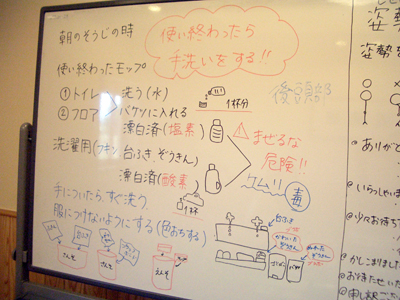 朝のそうじの時
使い終わったら
手洗いをする!!
使い終わったモップ
① トイレ 洗う (水)
1杯分
② フロアー バケツに入れる
漂白済 (塩素)
後頭部
洗濯用 (フキン 台ふき、ぞうきん)
漂白済 (酸素)
まぜるな
危険!!
毒
手についたら、すぐ洗う
1杯
服につけないようにする (色おちする)
台ふき
えんそ
えんそ
バケツ
姿勢
姿勢を
ありがと
@いらっしゃいま
@少々お待ち
かしこまりました
@お待たせいた
@申し訳ござ